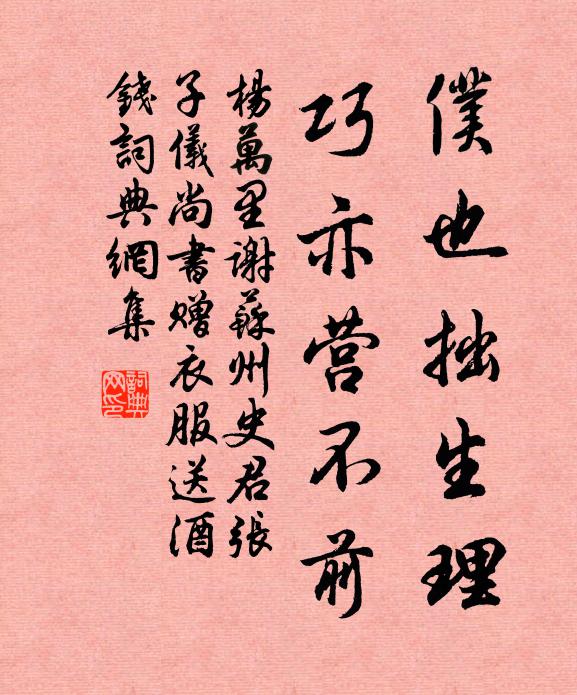 僕也拙生理
巧亦营不前
楊萬里谢蘇州史君張
子儀尚書赠衣服送酒
錢詞典網集
詞典网印